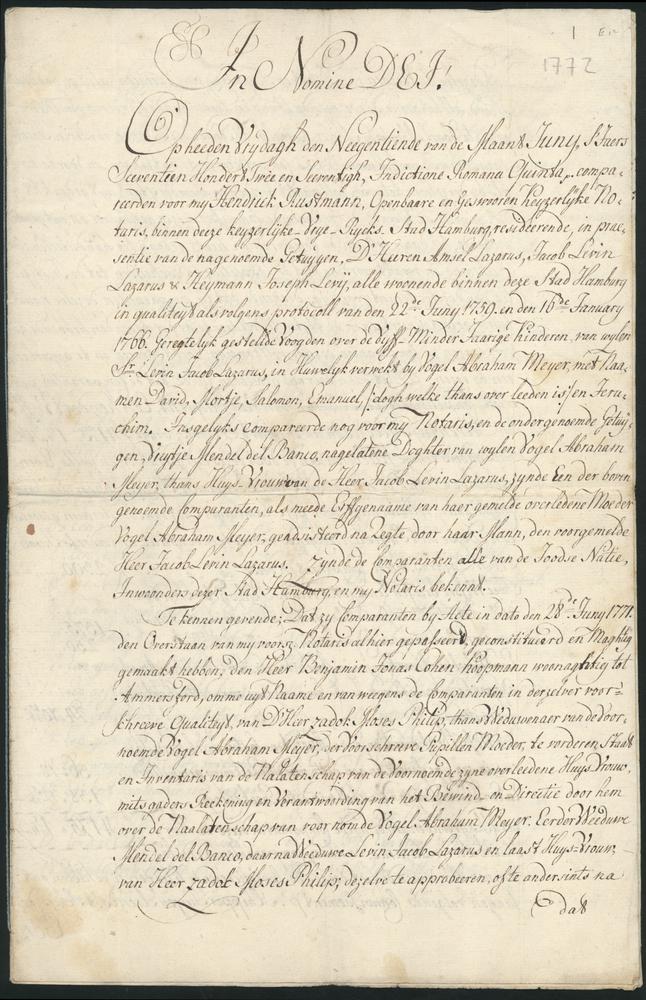 1 En
1772
In Nomine DEI!
Op heeden Vrydagh den Neegentiende van de Maant Juny, S' Jaers
Seeventien Hondert Twee en Seeventigh, Indictione Romana Quinta, compa-
reerden voor my Hendrick Rustmann, Openbaare en Geswooren Keyzerlyke No-
taris, binnen deeze keyzerlijke-Vrye-Rycks. Stad Hamburg, resideerende, in prae-
sentie van de nagenoemde Getuygen, D' Heeren Amsel Lazarus, Jacob Levin
Lazarus & Heymann Joseph Levÿ, alle woonende binnen deze Stad Hamburg
in qualiteyt als volgens protocoll van den 22de Juny 1759. en den 16de January
1766. Geregtelyk gestelde Voogden over de Vyff Minder Jaarige Kinderen van wylen
Sr. Levin Jacob Lazarus, in Huwelyk verwekt by Vogel Abraham Meyer, met Naa-
men David, Mortje, Salomon, Emanuel, /: dogh welke thans over leeden is:/ en Jeru-
chim. Insgelyks compareerde nog voor my Notaris, en de ondergenoemde Getuy-
gen, Mendel del Banco, nagelatene Doghter van wylen Vogel Abraham
Meyer, thans Huys-Vrouw van de Heer Jacob Levin Lazarus, zynde Een der boven
genoemde Comparanten, als meede Erffgenaame van haer gemelde overledene Moeder
Vogel Abraham Meyer, geadsisteerd na Regte, door haar Mann, den voorgemelde
Heer Jacob Levin Lazarus. Zynde de Comparanten alle van de Joodse Natie,
Inwoonders dezer Stad Hamburg, en my Notaris bekent.
Te kennen gevende: Dat zy Comparanten by Acte in dato den 28de Juny 1771.
den Overstaan van my voorsz. Notaris alhier gepasseerd, geconstitueerd en Maghtig
gemaakt hebben, den Heer Benjamin Jonas Cohen Koopmann woonaghtig tot
Ammersford, omme uyt Naame en van weegens de Comparanten in derzelver voor-
schreeve Qualiteyt, van D' Heer Zadok Moses Philip, thans Weduwenaer van de Voor-
noemde Vogel Abraham Meyer, der Voorschreeve Pupillen Moeder, te vorderen Staat
en Inventaris van de Nalatenschap van de Voornoemde zyne overleedene Huys-Vrouw,
mitsgaders Reekening en Verantwoording van het Bewind en Directie door hem
over de Naalatenschap van voornomde Vogel Abraham Meyer. Eerder Weeduwe
Mendel del Banco, daarna Weeduwe Levin Jacob Lazarus en laast Huys-Vrouw
van Heer Zadok Moses Philip; dezelve te approbeeren, ofte andersints na
dat